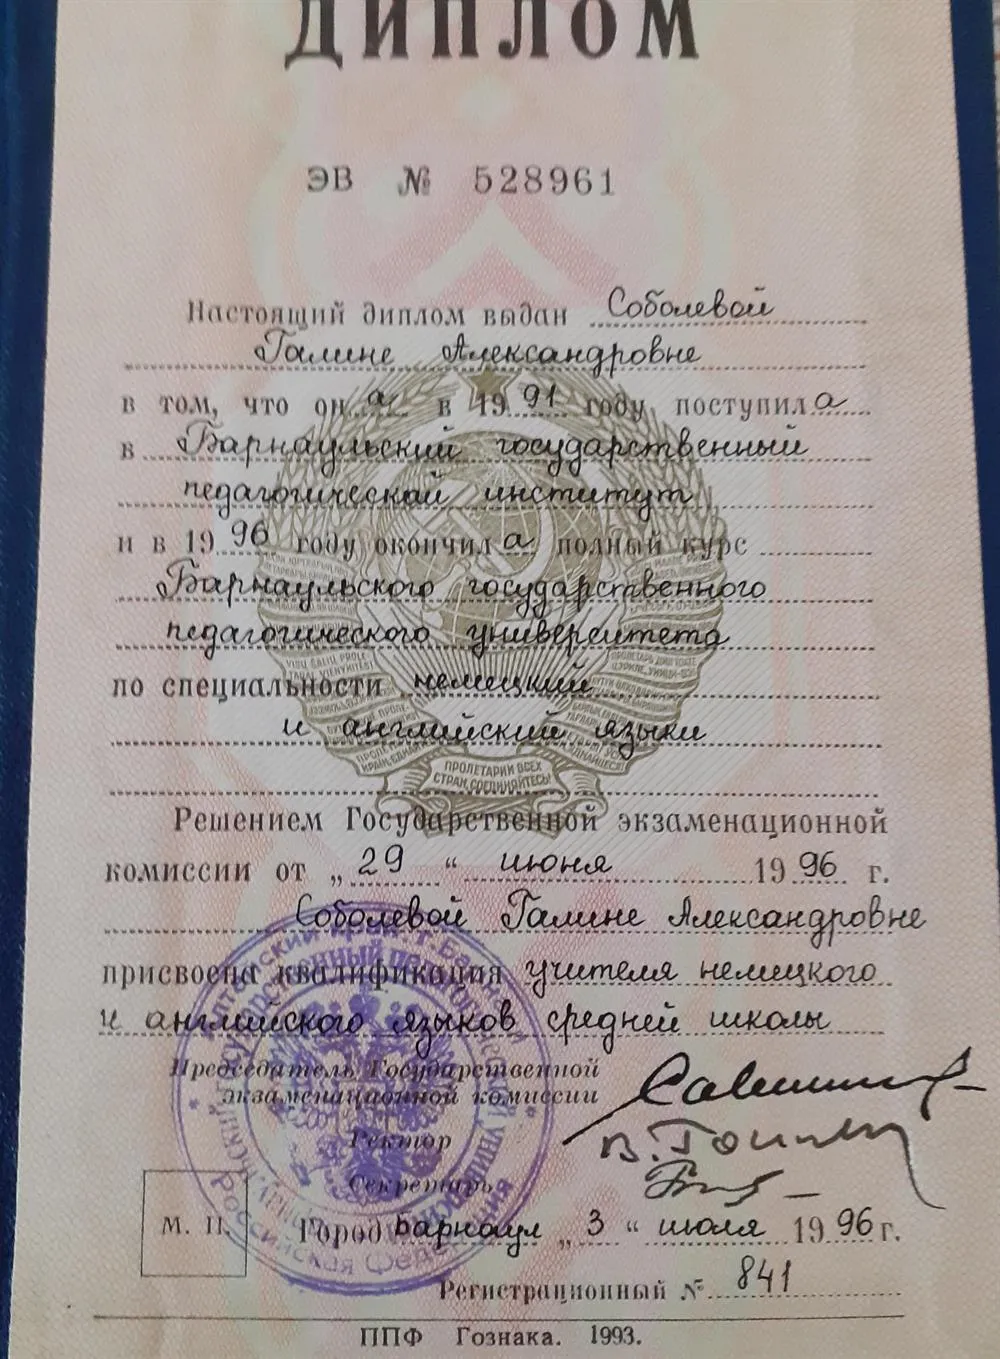 ДИПЛОМ
ЭВ № 528961
Настоящий диплом выдан Соболевой
Галине Александровне
в том, что она в 1991 году поступила
в Барнаульский государственный
педагогический институт
и в 1996 году окончила полный курс
Барнаульского государственного
педагогического университета
по специальности немецкий
и английский языки
ПРОЛЕТАРИИ ВСЕХ
СТРАН, СОЕДИНЯЙТЕСЬ!
Решением Государственной экзаменационной
комиссии от „29“ июня 1996 г.
Соболевой Галине Александровне
присвоена квалификация учителя немецкого
и английского языков средней школы
Председатель Государственной
экзаменационной комиссии
Ректор
Секретарь
М. П. Город Барнаул „3“ июля 1996 г.
Российская Федерация
Регистрационный № 841
ППФ Гознака. 1993.